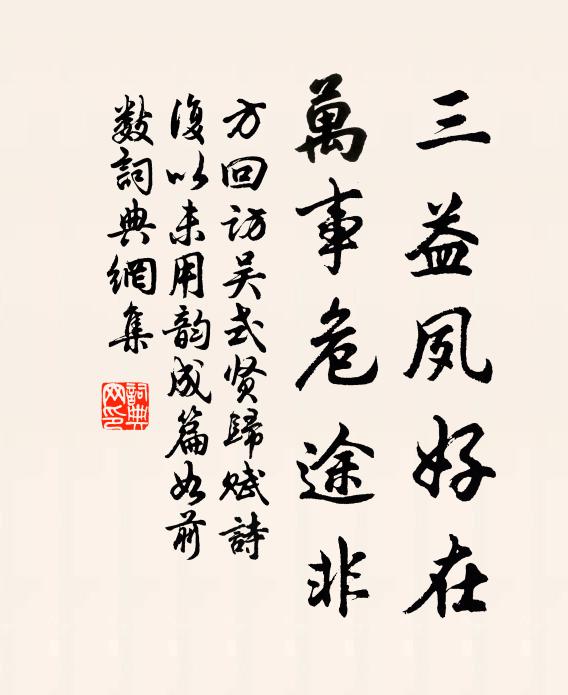 三益夙好在
萬事危途非
方回訪吴式贤歸赋詩
復以未用韵成篇如前
数詞典網集
詞典网印